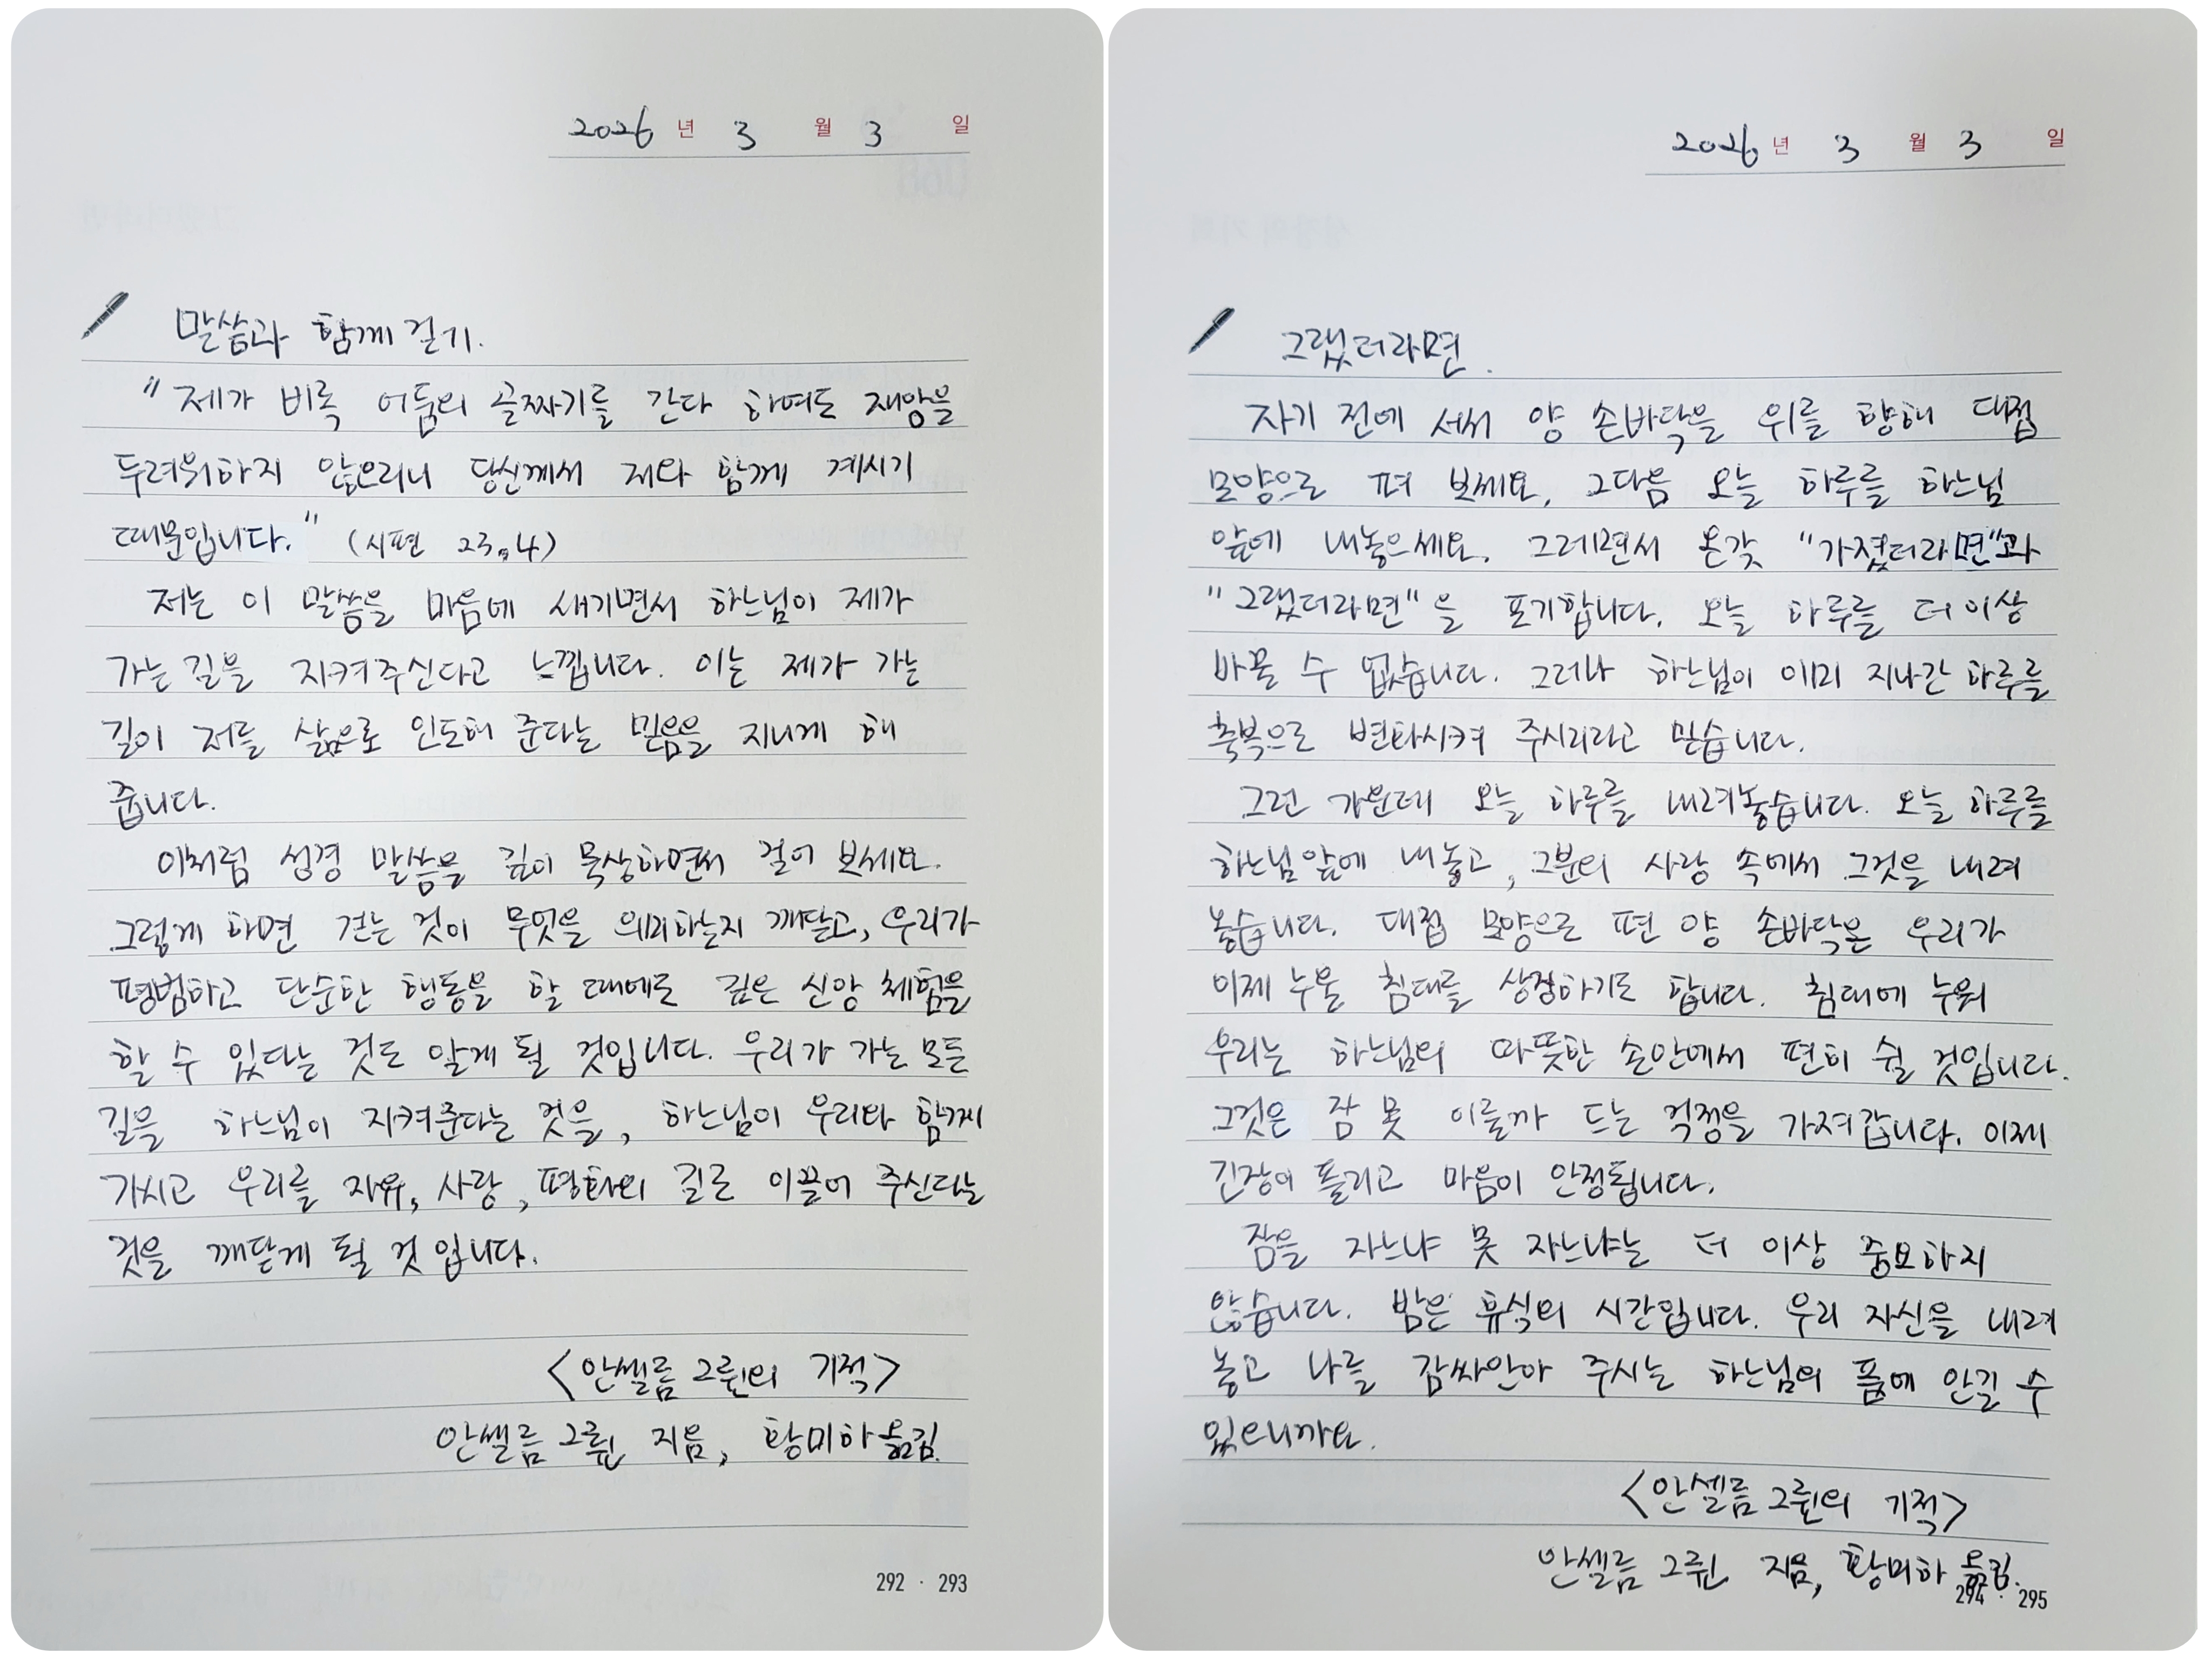 2026 년 3 월 3 일
말씀과 함께 걷기.
"제가 비록 어둠의 골짜기를 간다 하여도 재앙을
두려워하지 않으리니 당신께서 저와 함께 계시기
때문입니다." (시편 23,4)
저는 이 말씀을 마음에 새기면서 하느님이 제가
가는 길을 지켜주신다고 느낍니다. 이는 제가 가는
길이 저를 삶으로 인도해 준다는 믿음을 지니게 해
줍니다.
이처럼 성경 말씀을 깊이 묵상하면서 걸어 보세요.
그렇게 하면 걷는 것이 무엇을 의미하는지 깨닫고, 우리가
평범하고 단순한 행동을 할 때에도 깊은 신앙 체험을
할 수 있다는 것도 알게 될 것입니다. 우리가 가는 모든
길을 하느님이 지켜준다는 것을, 하느님이 우리와 함께
가시고 우리를 자유, 사랑, 평화의 길로 이끌어 주신다는
것을 깨닫게 될 것 입니다.
<안셀름 그륀의 기적>
안셀름 그륀 지음, 황미하 옮김.
292 · 293
2026 년 3 월 3 일
그랬더라면.
자기 전에 서서 양 손바닥을 위를 향해 대접
모양으로 펴 보세요. 그다음 오늘 하루를 하느님
앞에 내놓으세요. 그러면서 온갖 "가졌더라면"과
"그랬더라면"을 포기합니다. 오늘 하루를 더 이상
바꿀 수 없습니다. 그러나 하느님이 이미 지나간 하루를
축복으로 변화시켜 주시리라고 믿습니다.
그런 가운데 오늘 하루를 내려놓습니다. 오늘 하루를
하느님 앞에 내놓고, 그분의 사랑 속에서 그것을 내려
놓습니다. 대접 모양으로 편 양 손바닥은 우리가
이제 누울 침대를 상징하기도 합니다. 침대에 누워
우리는 하느님의 따뜻한 손안에서 편히 쉴 것입니다.
그것은 잠 못 이룰까 드는 걱정을 가져갑니다. 이제
긴장이 풀리고 마음이 안정됩니다.
잠을 자느냐 못 자느냐는 더 이상 중요하지
않습니다. 밤은 휴식의 시간입니다. 우리 자신을 내려
놓고 나를 감싸안아 주시는 하느님의 품에 안길 수
있으니까요.
<안셀름 그륀의 기적>
안셀름 그륀 지음, 황미하 옮김.
294 · 295